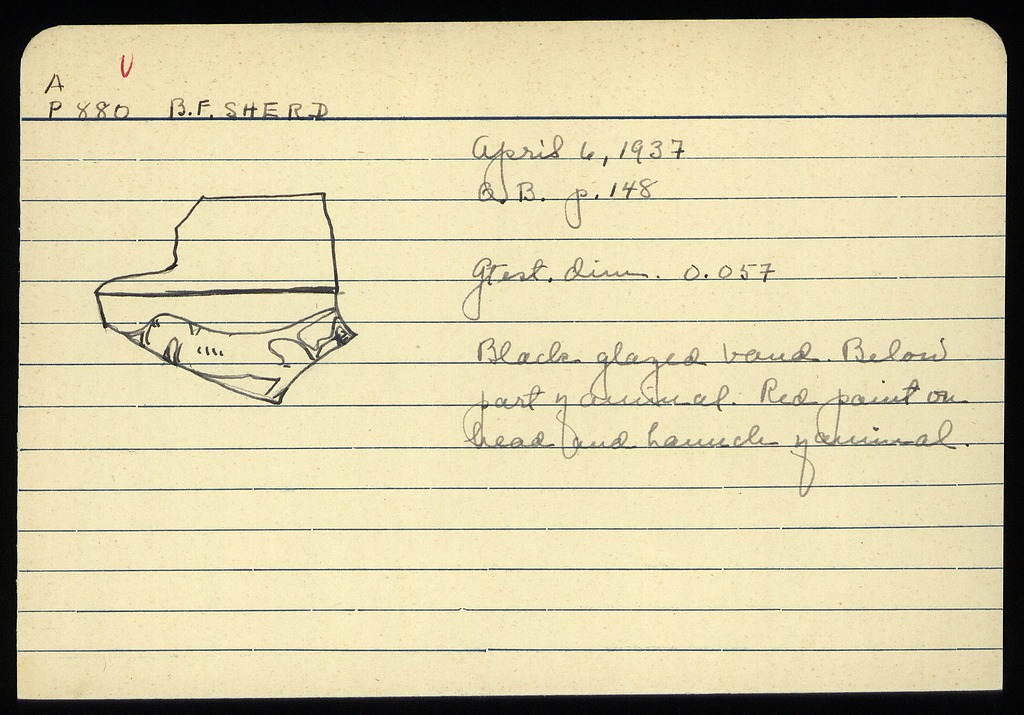 A
U
P 880 B.F. SHERD
April 6, 1937
B. p. 148
Gtest. dim. 0.057
Black glazed band. Below
part of animal. Red paint on
head and haunch of animal.